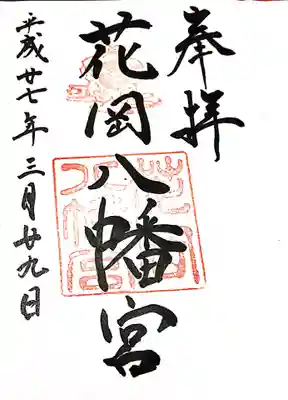 奉拝
花岡八幡宮
平成廿七年三月廿九日